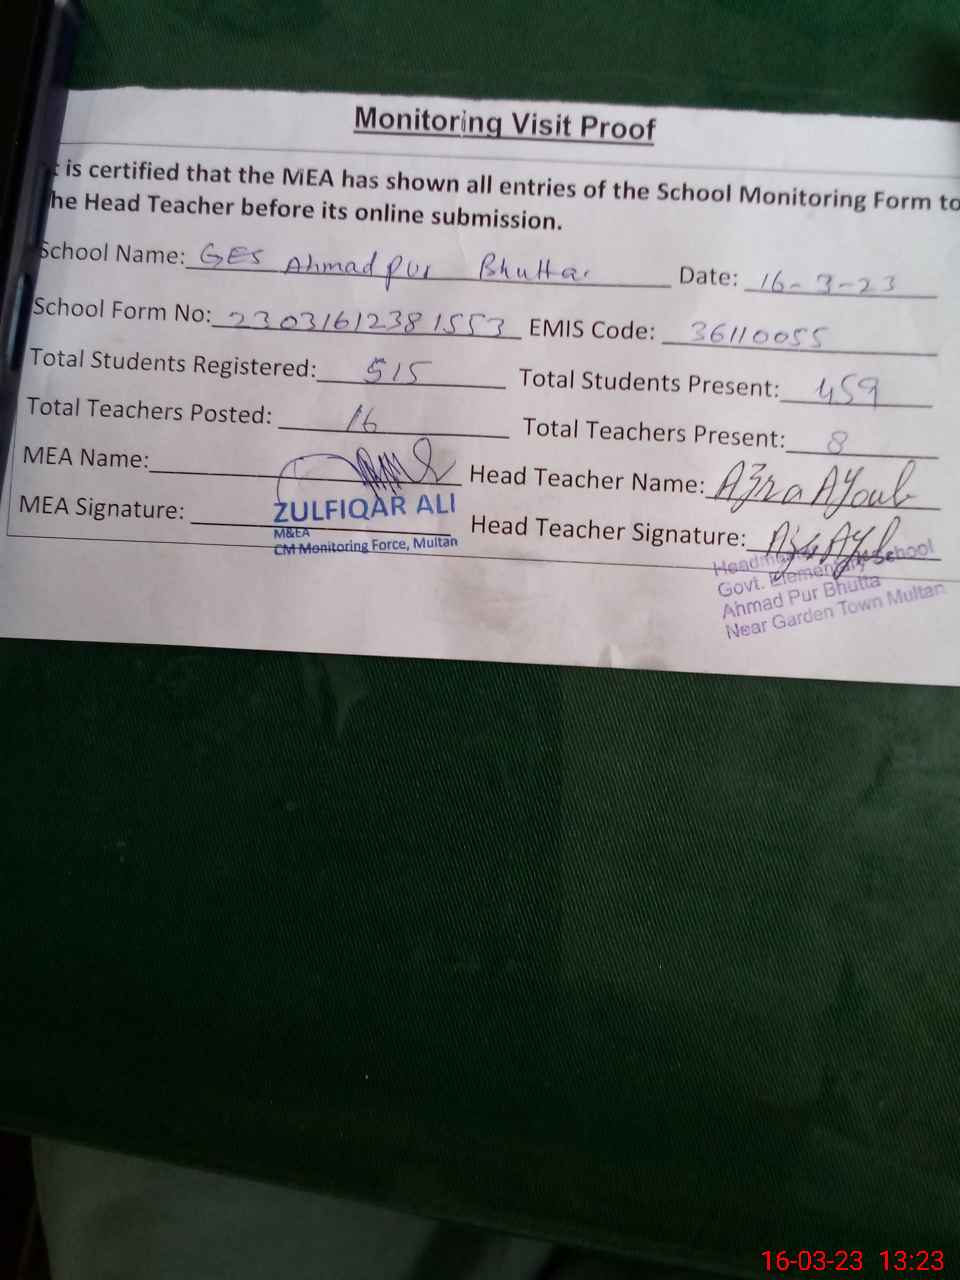 Monitoring Visit Proof
t is certified that the MEA has shown all entries of the School Monitoring Form to
he Head Teacher before its online submission.
School Name: GES Ahmad pur Bhuttar Date: 16-3-23
School Form No: 2303161238 1553 EMIS Code: 36110055
Total Students Registered: 515 Total Students Present: 459
Total Teachers Posted: 16 Total Teachers Present: 8
MEA Name: Head Teacher Name: Azra Ayoub
ZULFIQAR ALI
MEA Signature: Head Teacher Signature:
M&EA
CM Monitoring Force, Multan
School
Govt. Elementary
Ahmad Pur Bhutta
Near Garden Town Multan
16-03-23 13:23